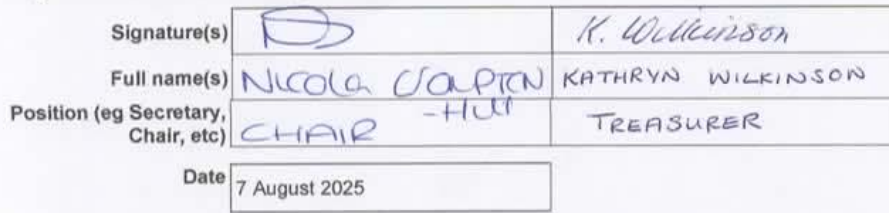 Signature(s) K. Wilkinson
Full name(s) NICOLA KATHRYN WILKINSON
-Hull
Position (eg Secretary, Chair, etc) CHAIR TREASURER
Date 7 August 2025